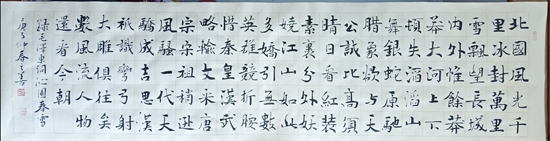 北國風光千
里冰封萬里
雪飄望長城
內外惟餘莽
莽大河上下
頓失滔滔山
舞銀蛇原馳
蠟象欲與天
公試比高須
晴日看紅裝
素裹分外妖
嬈江山如此
多嬌引無數
英雄競折腰
惜秦皇漢武
略輸文采唐
宗宋祖稍遜
風騷一代天
驕成吉思汗
祇識彎弓射
大雕俱往矣
數風流人物
還看今朝
錄毛澤東詞沁園春雪
仲春